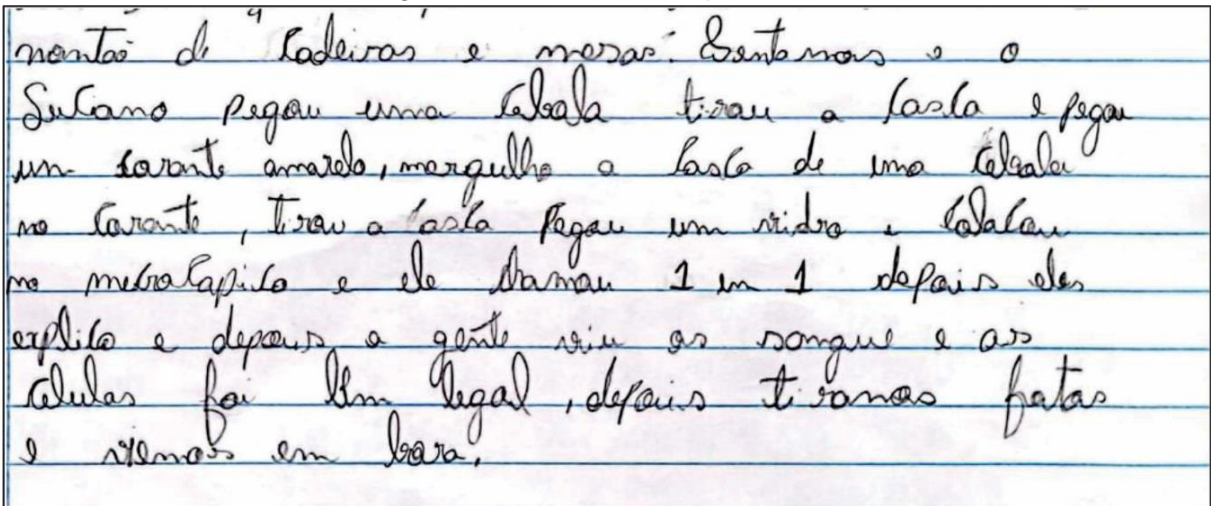 montão di cadeiras e mesas. Sentamos e o
Luciano pegou uma cebola tirou a casca e pegou
um corante amarelo, mergulho a casca de uma cebola
no corante, tirou a casca pegou um vidro e colocou
no microcapico e ele chamou 1 em 1 depois eles
explico e depois a gente viu os sangue e as
celulas foi bem legal, depois tiramos fotos
e viemos em bora.